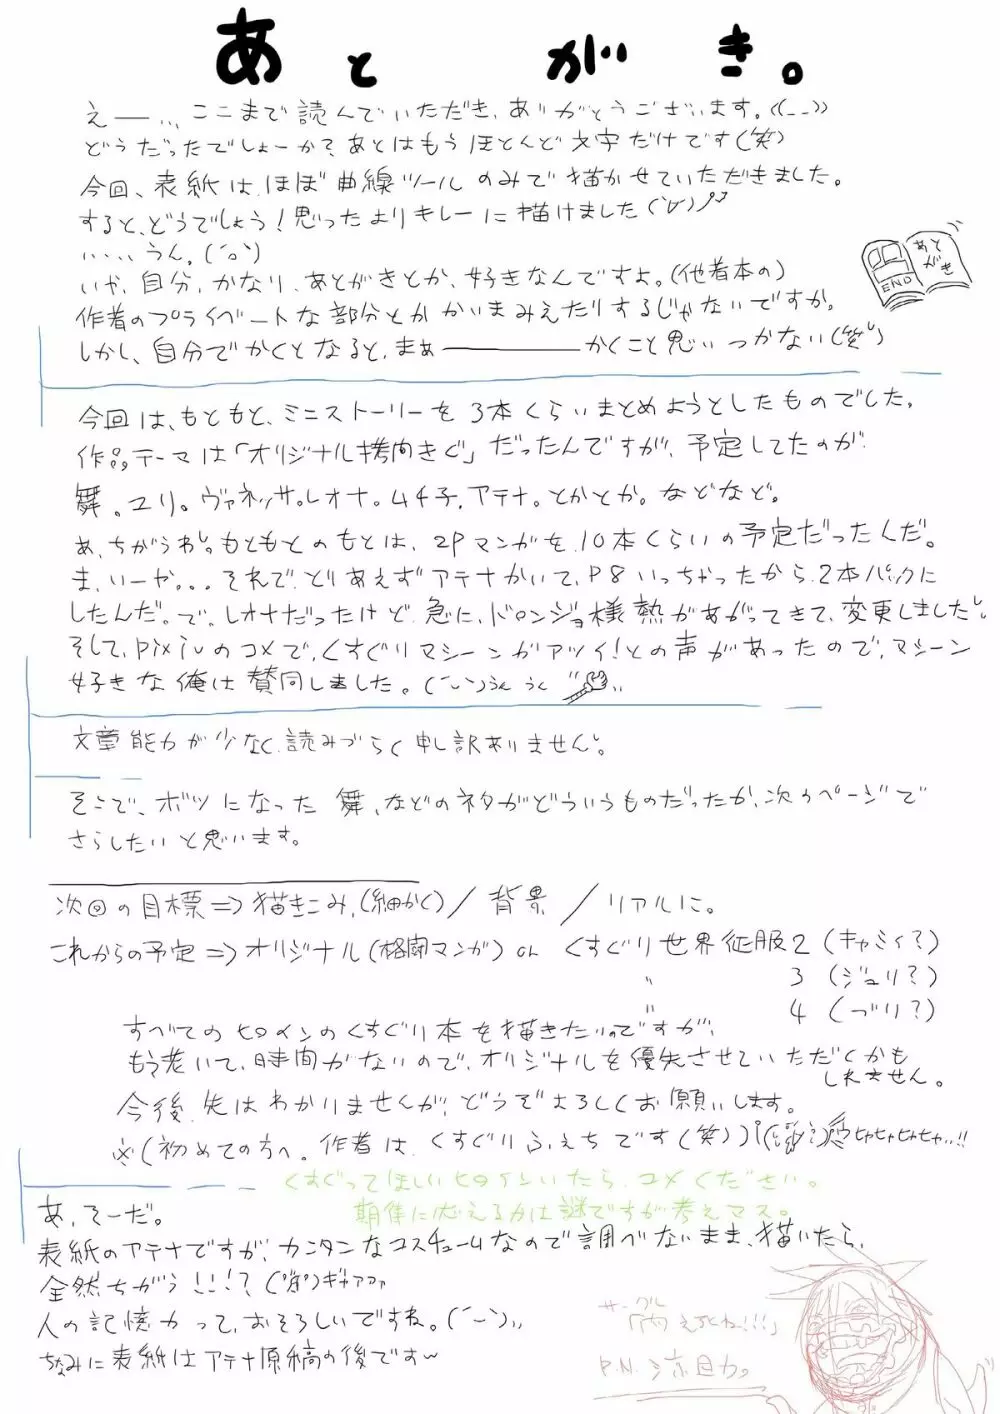 あとがき。
えー…、ここまで読んでいただき、ありがとうございます。((_ _))
どうだったでしょーか?あとはもうほとんど文字だけです(笑)
今回、表紙は、ほぼ曲線ツールのみで描かせていただきました。
すると、どうでしょう!思ったよりキレーに描けました(´∀`)ノ
・・・・うん。(´o`)
いや、自分、かなり、あとがきとか、好きなんですよ。(他者本の)
作者のプライベートな部分とかかいまみえたりするじゃないですか。
しかし、自分でかくとなると、まぁ――――かくこと思いつかない(笑)
あとがき
END
今回は、もともと、ミニストーリーを3本くらいまとめようとしたものでした。
作品テーマは「オリジナル拷問きぐ」だったんですが、予定してたのが
舞。ユリ。ヴァネッサ。レオナ。ムチ子。アテナ。とかとか。などなど。
あ、ちがうわ。もともとのもとは、2Pマンガを10本くらいの予定だったんだ。
ま、いーや。。。それで、とりあえずアテナかいて、P8いっちゃったから、2本パックに
したんだ。で、レオナだったけど、急に、ドロンジョ様熱があがってきて、変更しました。
そして、pixivのコメで、くすぐりマシーンがアツイ!との声があったので、マシーン
好きな俺は賛同しました。(´ー`)うんうん
文章能力が少なく、読みづらく申し訳ありません。
そこで、ボツになった舞、などのネタがどういうものだったか、次のページで
さらしたいと思います。
次回の目標⇒描きこみ、(細かく)/背景/リアルに。
これからの予定⇒オリジナル(格闘マンガ) or くすぐり世界征服2(キャミィ?)
〃 3(ジュリ?)
〃 4(づり?)
すべてのヒロインのくすぐり本を描きたいのですが、
もう老いて、時間がないので、オリジナルを優先させていただくかも
しれません。
今後、先はわかりませんが、どうぞよろしくお願いします。
※(初めての方へ。作者は、くすぐりふぇちです(笑))
くすぐってほしいヒロインいたら、コメください。
期待に応えるかは謎ですが考えマス。
あ、そーだ。
表紙のアテナですが、カンタンなコスチュームなので調べないまま、描いたら、
全然ちがう!!!?(゚Д゚)ギャアアア
人の記憶力って、おそろしいですね。(´ー`)、、
ちなみに表紙はアテナ原稿の後です〜
サークル
P.N.涼自力。